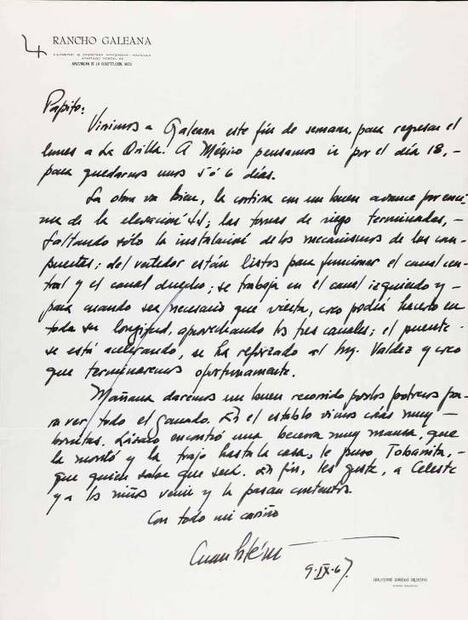 4
RANCHO GALEANA
Papito:
Vinimos a Galeana este fin de semana, para regresar el
lunes a La Villa. A México pensamos ir por el día 18,-
para quedarnos unos 5 ó 6 días.
La obra va bien, la cortina con un buen avance por enci-
ma de la elevación 44; las tomas de riego terminadas,-
faltando sólo la instalación de los mecanismos de las com-
puertas; del vertedor están listos para funcionar el canal cen-
tral y el canal derecho; se trabaja en el canal izquierdo y-
para cuando sea necesario que vierta, creo podrá hacerlo en
toda su longitud, aprovechando los tres canales; el puente-
se está acelerando, se ha reforzado al Ing. Valdez y creo
que terminaremos oportunamente.
Mañana daremos un buen recorrido por los potreros pa-
ra ver todo el ganado. En el establo vimos crías muy-
bonitas. Lázaro encontró una becerra muy mansa, que
la montó y la trajo hasta la casa, le puso,
que quien sabe que será. En fin, les gusta, a Celeste
y a los niños venir y la pasan contentos.
Con todo mi cariño
Cuauhtémoc
9·IX·67.